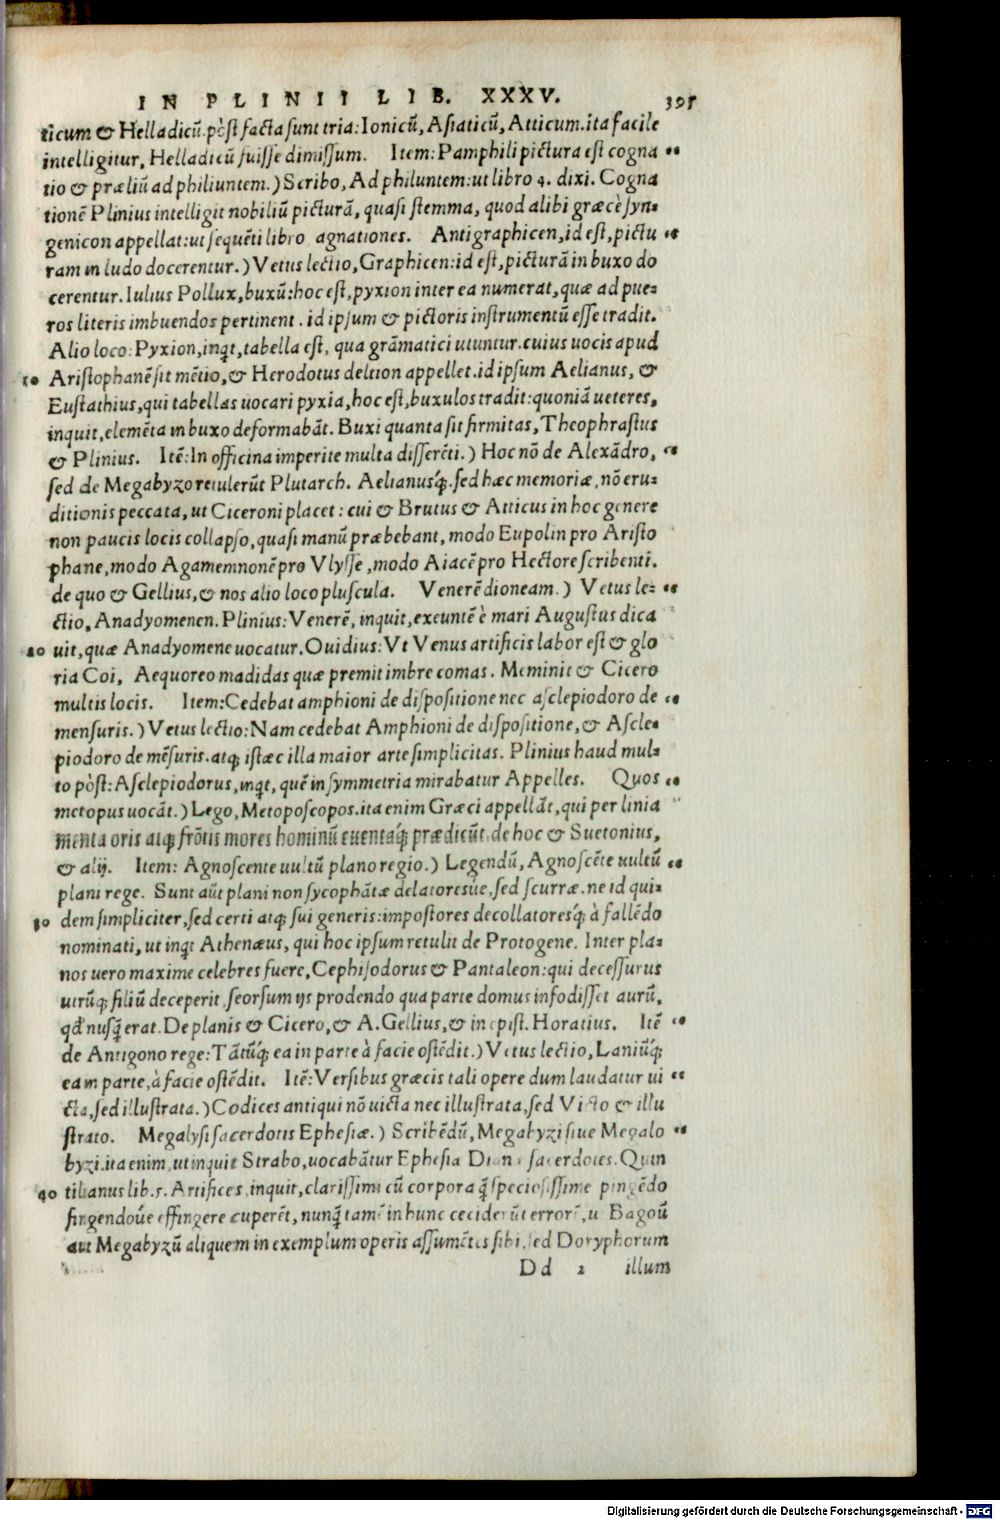 IN PLINII LIB. XXXV. 395
ticum & Helladicũ. pòst facta sunt tria: Ionicũ, Asiaticũ, Atticum. ita facile
intelligitur, Helladicũ fuisse dimissum. Item: Pamphili pictura est cogna
tio & præliũ ad philiuntem.) Scribo, Ad philuntem: ut libro 4. dixi. Cogna
tionẽ Plinius intelligit nobiliũ picturã, quasi stemma, quod alibi græcè syn-
genicon appellat: ut sequẽti libro agnationes. Antigraphicen, id est, pictu
ram in ludo docerentur.) Vetus lectio, Graphicen: id est, picturã in buxo do
cerentur. Iulius Pollux, buxũ: hoc est, pyxion inter ea numerat, quæ ad pue-
ros literis imbuendos pertinent. id ipsum & pictoris instrumentũ esse tradit.
Alio loco: Pyxion, inqt, tabella est, qua grãmatici utuntur. cuius uocis apud
10 Aristophanẽ sit mẽtio, & Herodotus deltion appellet. id ipsum Aelianus, &
Eustathius, qui tabellas uocari pyxia, hoc est, buxulos tradit: quoniã ueteres,
inquit, elemẽta in buxo deformabãt. Buxi quanta sit firmitas, Theophrastus
& Plinius. Itẽ: In officina imperite multa disserẽti.) Hoc nõ de Alexãdro,
sed de Megabyzo retulerũt Plutarch. Aelianusq́;. sed hæc memoriæ, nõ eru-
ditionis peccata, ut Ciceroni placet: cui & Brutus & Atticus in hoc genere
non paucis locis collapso, quasi manũ præbebant, modo Eupolin pro Aristo
phane, modo Agamemnonẽ pro Vlysse, modo Aiacẽ pro Hectore scribenti.
de quo & Gellius, & nos alio loco pluscula. Venerẽ dioneam.) Vetus le-
ctio, Anadyomenen. Plinius: Venerẽ, inquit, exeuntẽ è mari Augustus dica
20 uit, quæ Anadyomene uocatur. Ouidius: Vt Venus artificis labor est & glo
ria Coi, Aequoreo madidas quæ premit imbre comas. Meminit & Cicero
multis locis. Item: Cedebat amphioni de dispositione nec asclepiodoro de
mensuris.) Vetus lectio: Nam cedebat Amphioni de dispositione, & Ascle-
piodoro de mẽsuris. atq; istæc illa maior arte simplicitas. Plinius haud mul-
to pòst: Asclepiodorus, inqt, quẽ in symmetria mirabatur Appelles. Quos
metopus uocãt.) Lego, Metoposcopos. ita enim Græci appellãt, qui per linia
menta oris atq; frõtis mores hominũ euentaq́; prædicũt. de hoc & Suetonius,
& alij. Item: Agnoscente uultũ plano regio.) Legendũ, Agnoscẽte uultũ
plani rege. Sunt aũt plani non sycophãtæ delatoresúe, sed scurræ. ne id qui-
30 dem simpliciter, sed certi atq; sui generis: impostores decollatoresq́; à fallẽdo
nominati, ut inqt Athenæus, qui hoc ipsum retulit de Protogene. Inter pla-
nos uero maxime celebres fuere, Cephisodorus & Pantaleon: qui decessurus
utrũq; filiũ deceperit, seorsum ijs prodendo qua parte domus infodisset aurũ,
qd́ nusq̃ erat. De planis & Cicero, & A. Gellius, & in epist. Horatius. Itẽ
de Antigono rege: Tãtũq́; ea in parte à facie ostẽdit.) Vetus lectio, Laniũq́;
eam parte, à facie ostẽdit. Itẽ: Versibus græcis tali opere dum laudatur ui
cta, sed illustrata.) Codices antiqui nõ uicta nec illustrata, sed Victo & illu
strato. Megalysi sacerdotis Ephesiæ.) Scribẽdũ, Megabyzi siue Megalo
byzi. ita enim, ut inquit Strabo, uocabãtur Ephesia Dianæ sacerdotes. Quin
40 tilianus lib. 5. Artifices inquit, clarissimi cũ corpora q̃ speciosissime pingẽdo
fingendoúe effingere cuperẽt, nunq̃ tamẽ in hunc ceciderũt errorẽ, u Bagoũ
aut Megabyzũ aliquem in exemplum operis assumẽtes sibi, sed Doryphorum
Dd 2 illum
Digitalisierung gefördert durch die Deutsche Forschungsgemeinschaft - DFG